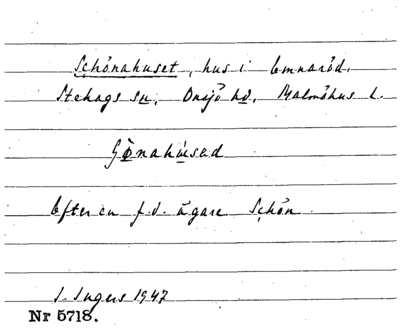 Schönahuset, hus i Emnaröd.
Stehags sn, Onsjö hd, Malmöhus l.
Efter en f.d. ägare Schön
S. Ingers 1947
Nr 5718.